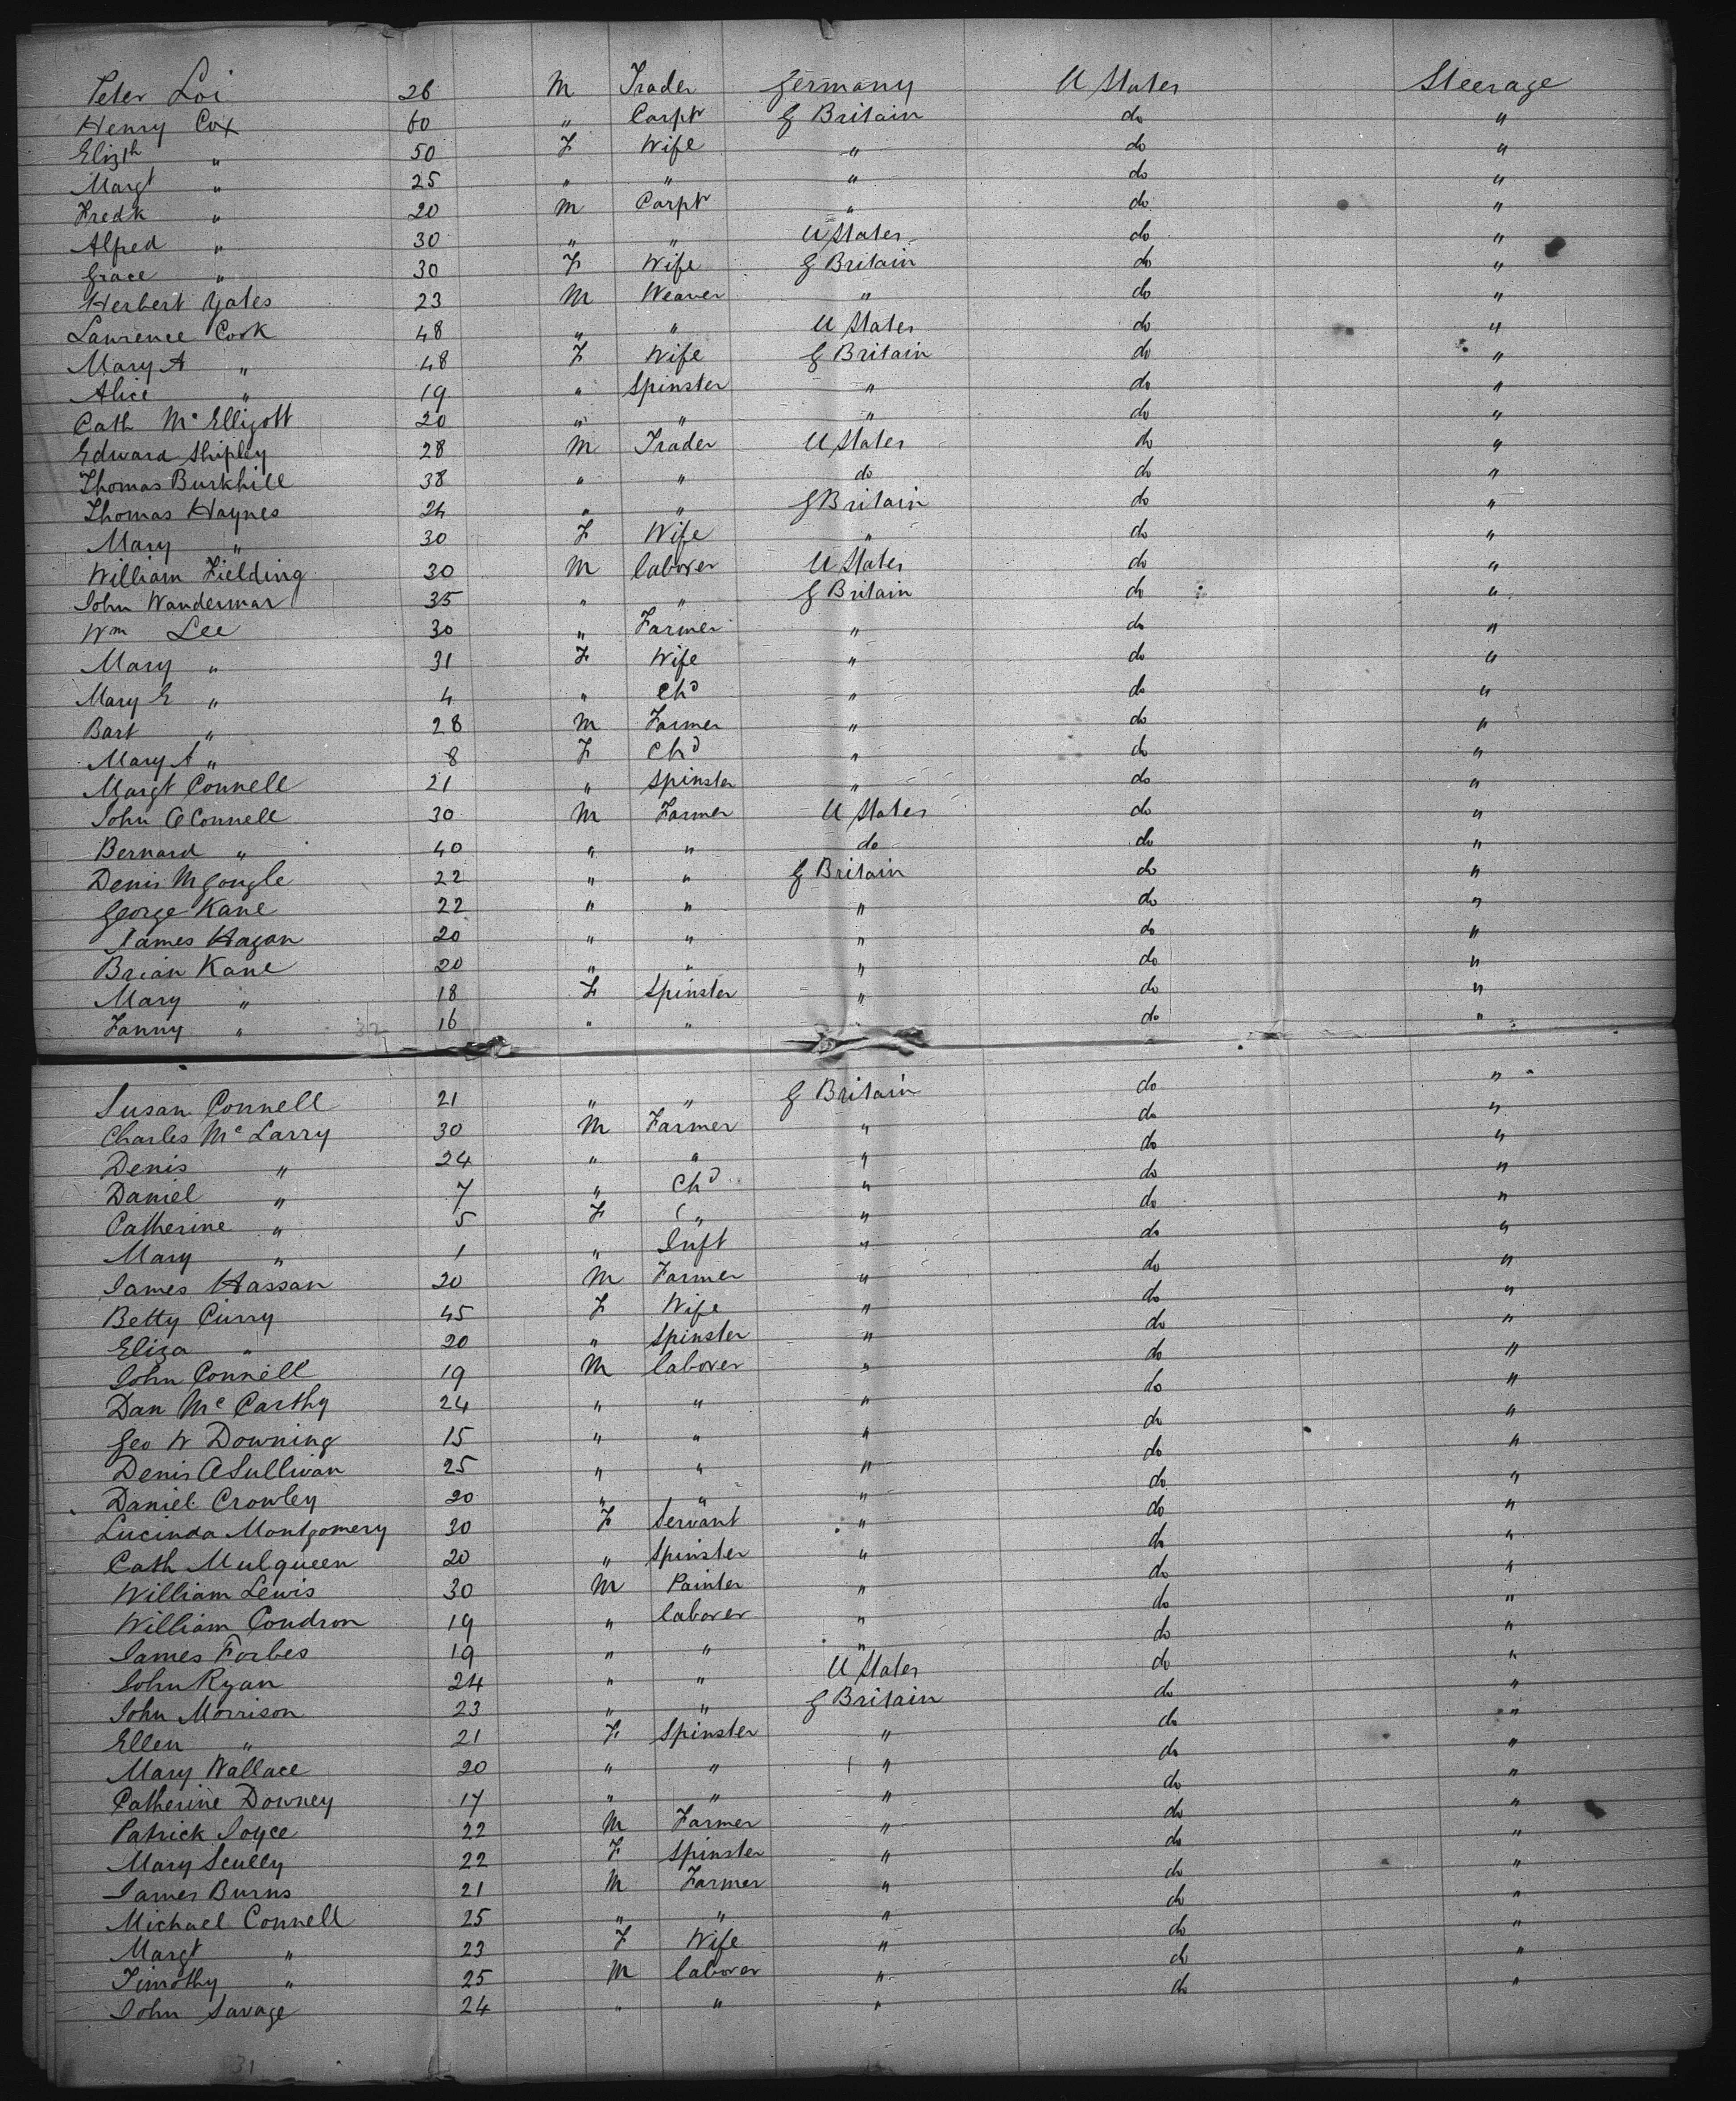 Peter Loi 26 M Trader Germany U States Steerage
Henry Cox 60 " Carptr G Britain do "
Elizth " 50 F Wife " do "
Margt " 25 " " " do "
Fredk " 20 M Carptr " do "
Alfred " 30 " " U States do "
Grace " 30 F Wife G Britain do "
Herbert Yates 23 M Weaver " do "
Lawrence Cork 48 " " U States do "
Mary A " 48 F Wife G Britain do "
Alice " 19 " Spinster " do "
Cath McElligott 20 " " " do "
Edward Shipley 28 M Trader U States do "
Thomas Burkhill 38 " " do do "
Thomas Haynes 24 " " G Britain do "
Mary " 30 F Wife " do "
William Fielding 30 M laborer U States do "
John Wandermar 35 " " G Britain do "
Wm Lee 30 " Farmer " do "
Mary " 31 F Wife " do "
Mary E " 4 " Chd " do "
Bart " 28 M Farmer " do "
Mary A " 8 F Chd " do "
Margt Connell 21 " Spinster " do "
John OConnell 30 M Farmer U States do "
Bernard " 40 " " do do "
Denis McGongle 22 " " G Britain do "
George Kane 22 " " " do "
James Hagan 20 " " " do "
Brian Kane 20 " " " do "
Mary " 18 F Spinster " do "
Fanny " 32 16 " " " do "
Susan Connell 21 " " G Britain do "
Charles McLarry 30 M Farmer " do "
Denis " 24 " " " do "
Daniel " 7 " Chd " do "
Catherine " 5 F " " do "
Mary " 1 " Inft " do "
James Hassan 20 M Farmer " do "
Betty Curry 45 F Wife " do "
Eliza " 20 " Spinster " do "
John Connell 19 M laborer " do "
Dan McCarthy 24 " " " do "
Geo W Downing 15 " " " do "
Denis OSullivan 25 " " " do "
Daniel Crowley 20 " " " do "
Lucinda Montgomery 30 F Servant " do "
Cath Mulqueen 20 " Spinster " do "
William Lewis 30 M Painter " do "
William Condron 19 " laborer " do "
James Forbes 19 " " " do "
John Ryan 24 " " U States do "
John Morrison 23 " " G Britain do "
Ellen " 21 F Spinster " do "
Mary Wallace 20 " " " do "
Catherine Downey 17 " " " do "
Patrick Joyce 22 M Farmer " do "
Mary Scully 22 F Spinster " do "
James Burns 21 M Farmer " do "
Michael Connell 25 " " " do "
Margt " 23 F Wife " do "
Timothy " 25 M laborer " do "
John Savage 24 " " " do "
31